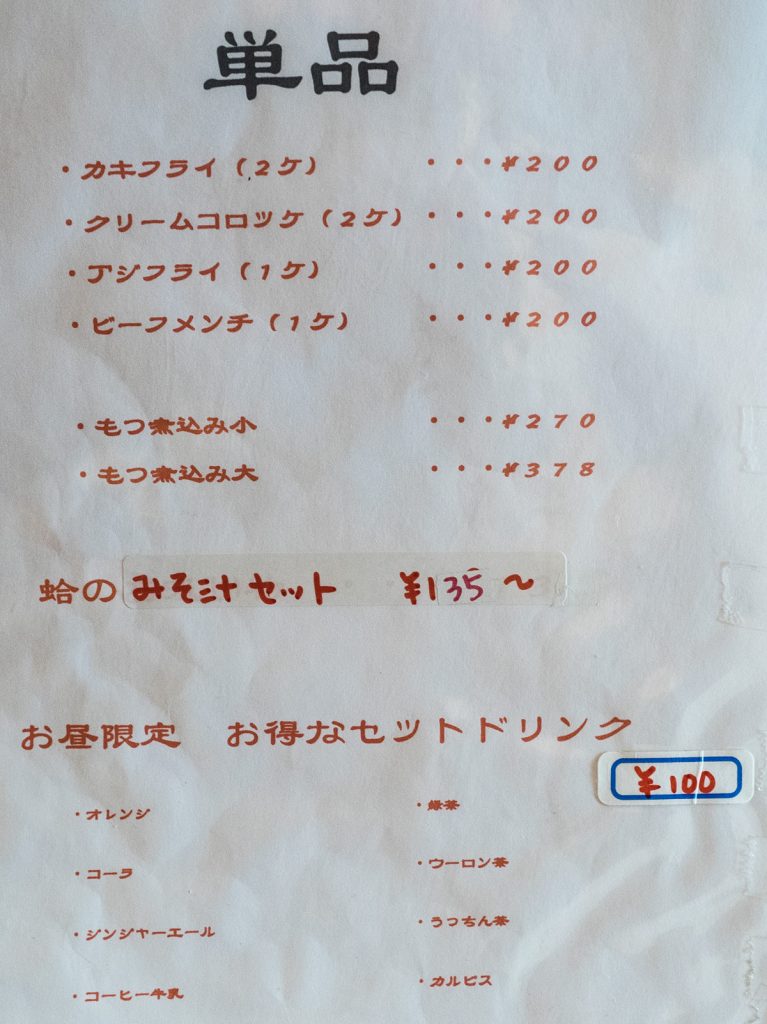 単品
・カキフライ（2ケ） ・・・¥200
・クリームコロッケ（2ケ） ・・・¥200
・アジフライ（1ケ） ・・・¥200
・ビーフメンチ（1ケ） ・・・¥200
・もつ煮込み小 ・・・¥270
・もつ煮込み大 ・・・¥378
蛤のみそ汁セット ¥135〜
お昼限定 お得なセットドリンク
¥100
・オレンジ ・緑茶
・コーラ ・ウーロン茶
・ジンジャーエール ・うっちん茶
・コーヒー牛乳 ・カルピス